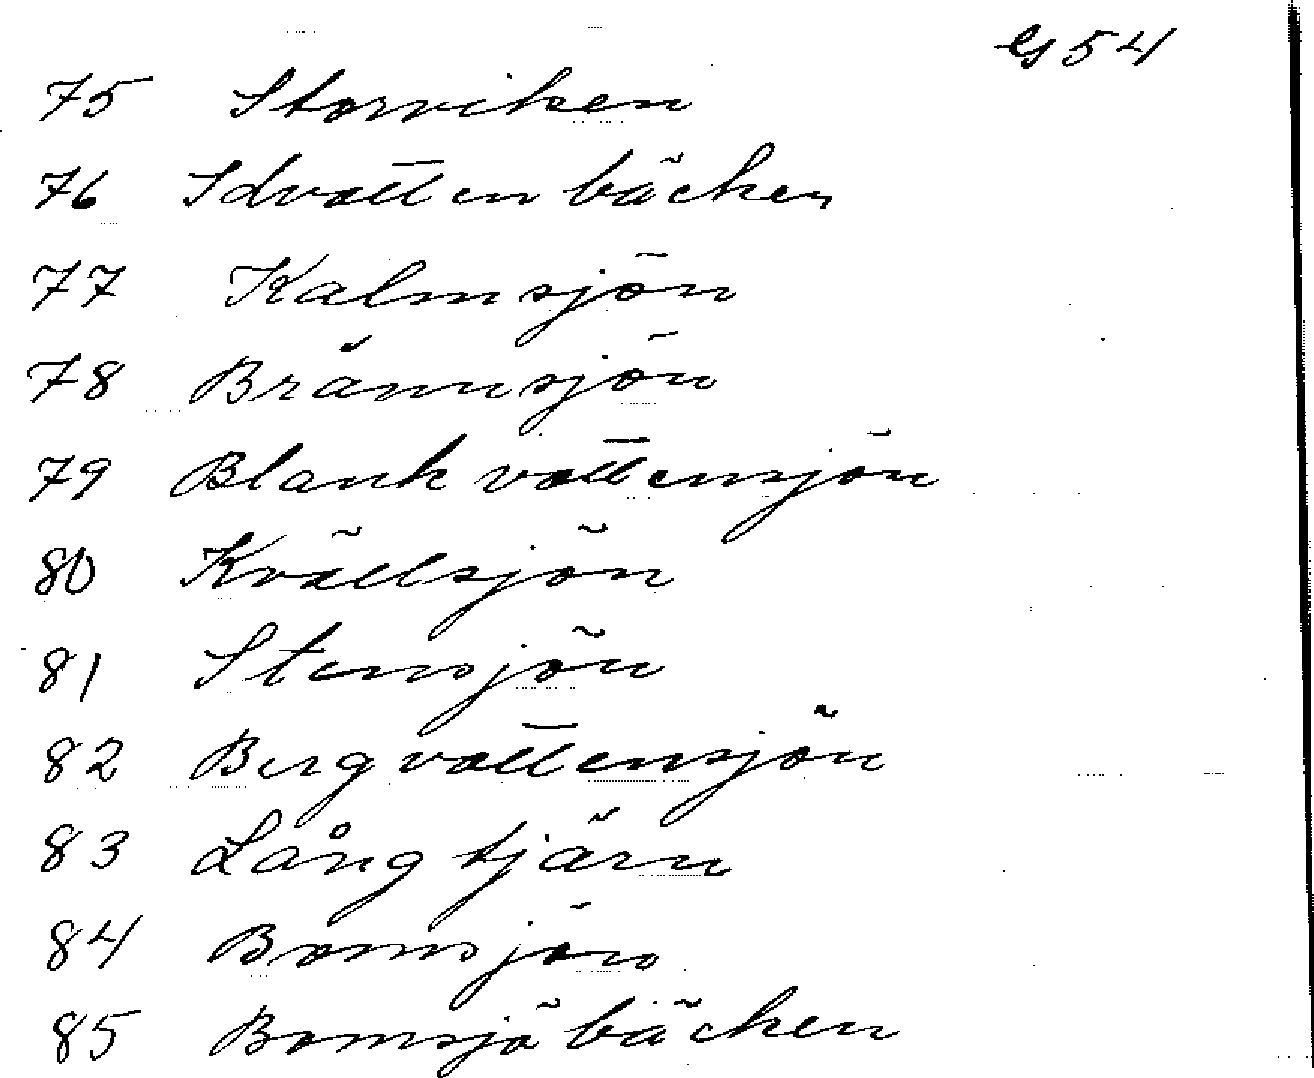 G 54
75 Storviken
76 Idvattenbäcken
77 Kalmsjön
78 Brännsjön
79 Blankvattensjön
80 Kvällsjön
81 Stensjön
82 Bergvattensjön
83 Långtjärn
84 Bomsjön
85 Bomsjöbäcken